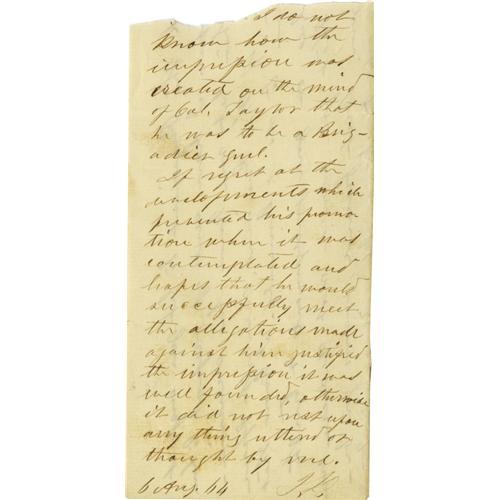 I do not
know how the
impression was
created on the mind
of Col. Taylor that
he was to be a Brig-
adier Genl.
If regret at the
developments which
prevented his promo
tion when it was
contemplated and
hopes that he would
successfully meet
the allegations made
against him justified
the impression it was
well founded, otherwise
it did not rest upon
any thing uttered or
thought by me.
6 Aug. 64